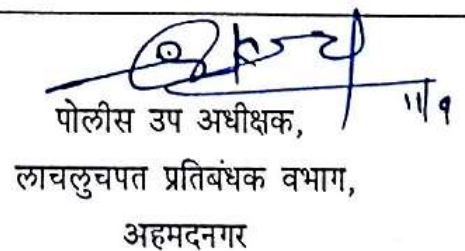 ११/९
पोलीस उप अधीक्षक,
लाचलुचपत प्रतिबंधक वभाग,
अहमदनगर